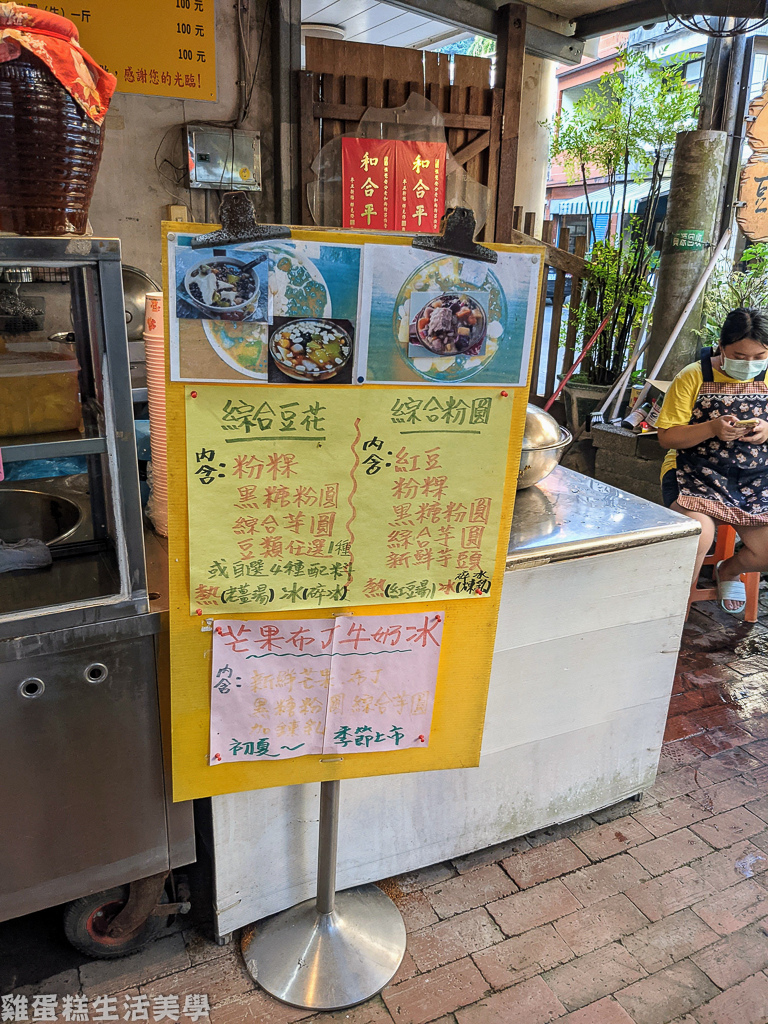 (牛)一斤 100元
100元
100元
感謝您的光臨!
和合平
和合平
綜合豆花
內含:粉粿
黑糖粉圓
綜合芋圓
豆類任選1種
或自選4種配料
熱(老薑湯)冰(碎冰)
綜合粉圓
內含:紅豆
粉粿
黑糖粉圓
綜合芋圓
新鮮芋頭
熱(紅豆湯)冰(碎冰
煉乳)
芒果布丁牛奶冰
內含:新鮮芒果 布丁
黑糖粉圓 綜合芋圓
加煉乳
初夏~ 季節上市
豆
雞蛋糕生活美學